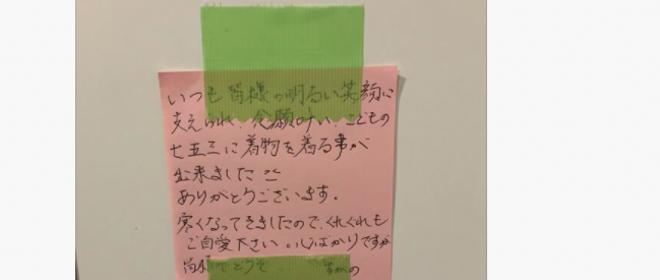 いつも皆様の明るい笑顔に
支えられ、念願叶い、こどもの
七五三に着物を着る事が
出来ました
ありがとうございます。
寒くなってきましたので、くれぐれも
ご自愛下さい。心ばかりですが
皆様でどうぞ